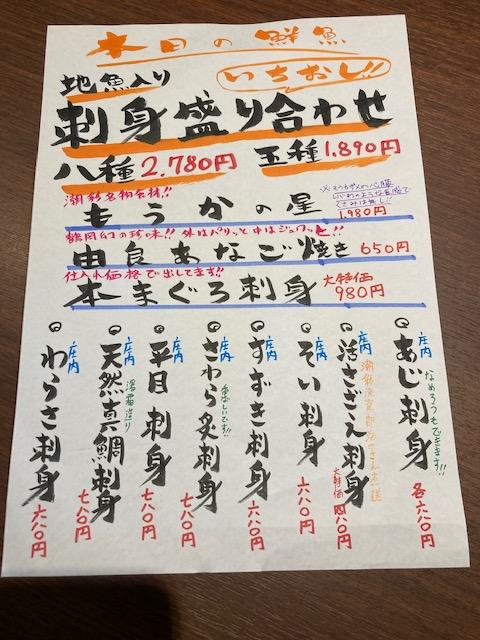 本日の鮮魚
いちおし!!
地魚入り
刺身盛り合わせ
八種 2.780円 五種 1.890円
潮彩名物食材!!
もうかの星 1.980円
※モウカザメの心臓
レバーのような食感で
くさみは無し!!
鶴岡幻の珍味!! 外はパリッと中はジュワッと!!
由良あなご焼き 650円
仕入れ価格で出してます!!
本まぐろ刺身 大特価 980円
庄内 あじ刺身 各六八〇円
なめろうもできます!!
庄内 活さざえ刺身 大特価 四八〇円
庄内 そい刺身 六八〇円
庄内 すずき刺身 六八〇円
庄内 さわら炙刺身 七八〇円
庄内 平目刺身 七八〇円
庄内 天然真鯛刺身 七八〇円
湯霜造り
庄内 わらさ刺身 六八〇円